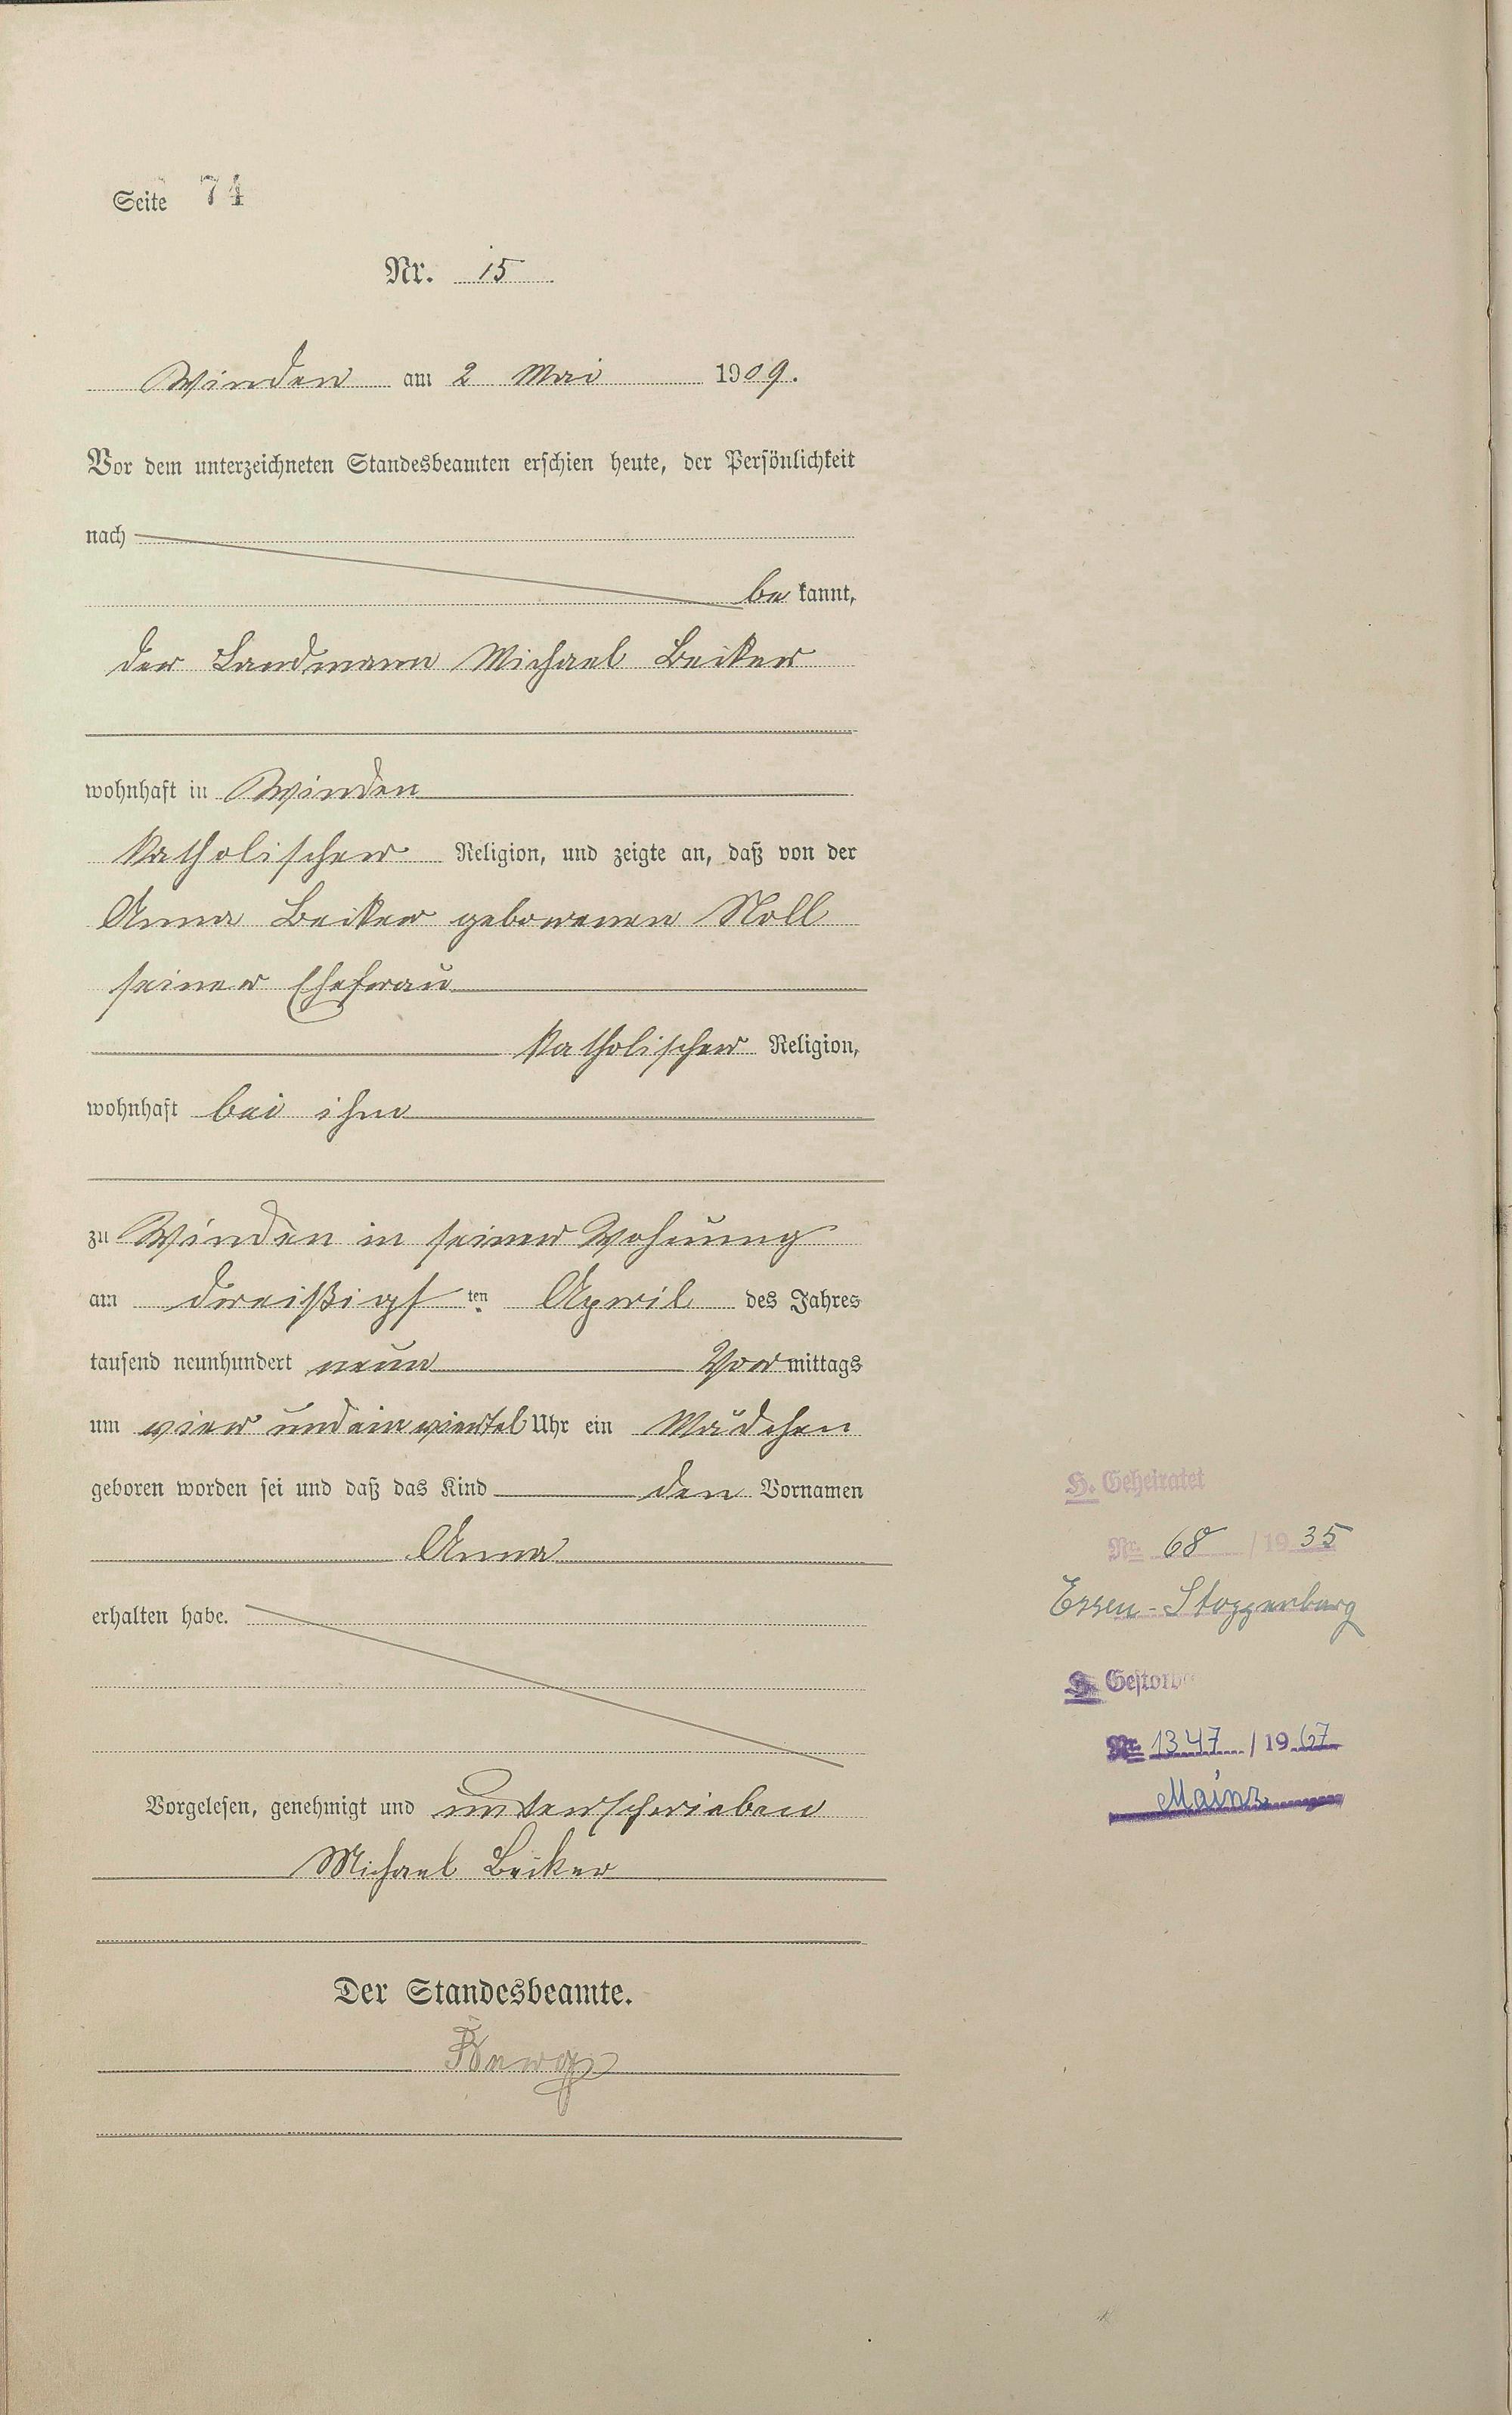 Seite 74
Nr. 15
Winden am 2 Mai 1909.
Vor dem unterzeichneten Standesbeamten erschien heute, der Persönlichkeit
nach
be kannt,
der Landmann Michael Becker
wohnhaft in Winden
katholischer Religion, und zeigte an, daß von der
Anna Becker geborenen Noll
seiner Ehefrau
katholischer Religion,
wohnhaft bei ihm
zu Winden in seiner Wohnung
am dreißigst ten April des Jahres
tausend neunhundert neun Vormittags
um vier und ein viertel Uhr ein Mädchen
geboren worden sei und daß das Kind den Vornamen
Anna
erhalten habe.
Vorgelesen, genehmigt und unterschrieben
Michael Becker
Der Standesbeamte.
H. Geheiratet
Nr. 68 / 1935
Essen-Stoppenberg
Nr. 1347 / 1967
Mainz